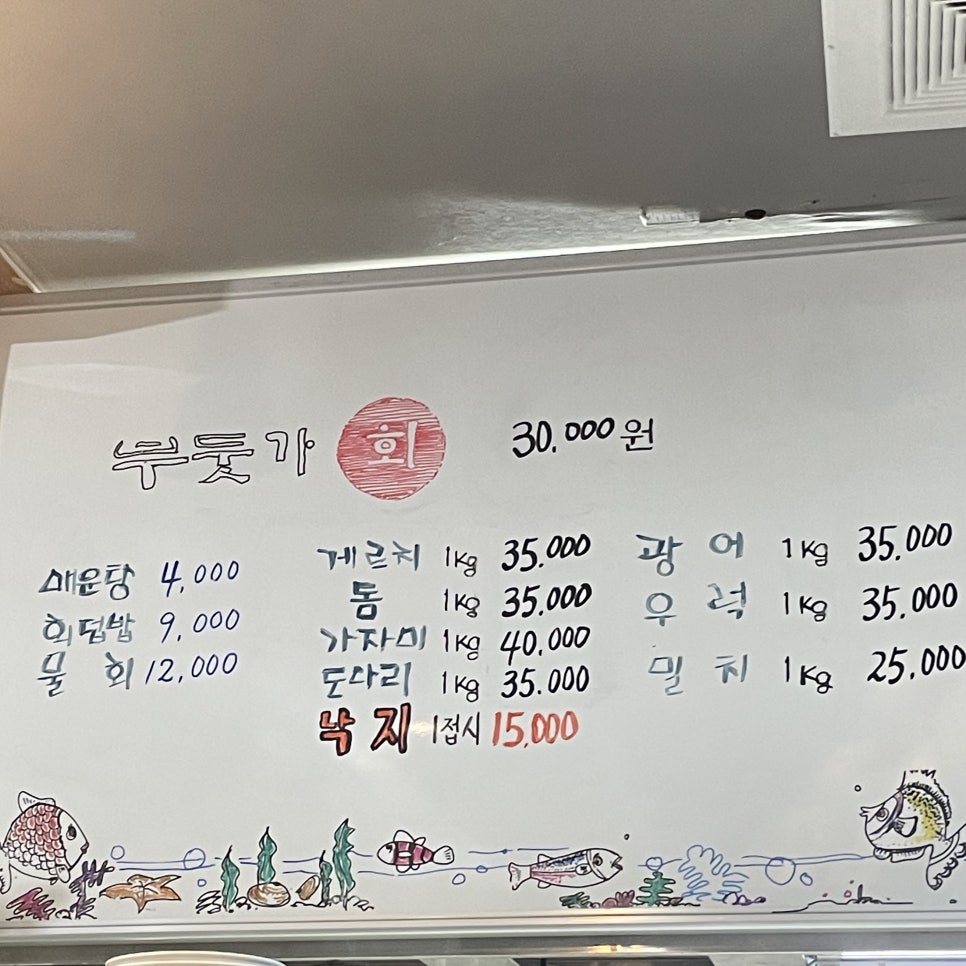 부둣가 회 30,000원
매운탕 4,000
회덮밥 9,000
물 회 12,000
게르치 1kg 35.000
돔 1kg 35,000
가자미 1kg 40,000
도다리 1kg 35.000
낙지 1접시 15,000
광어 1kg 35.000
우럭 1kg 35.000
밀치 1kg 25.000